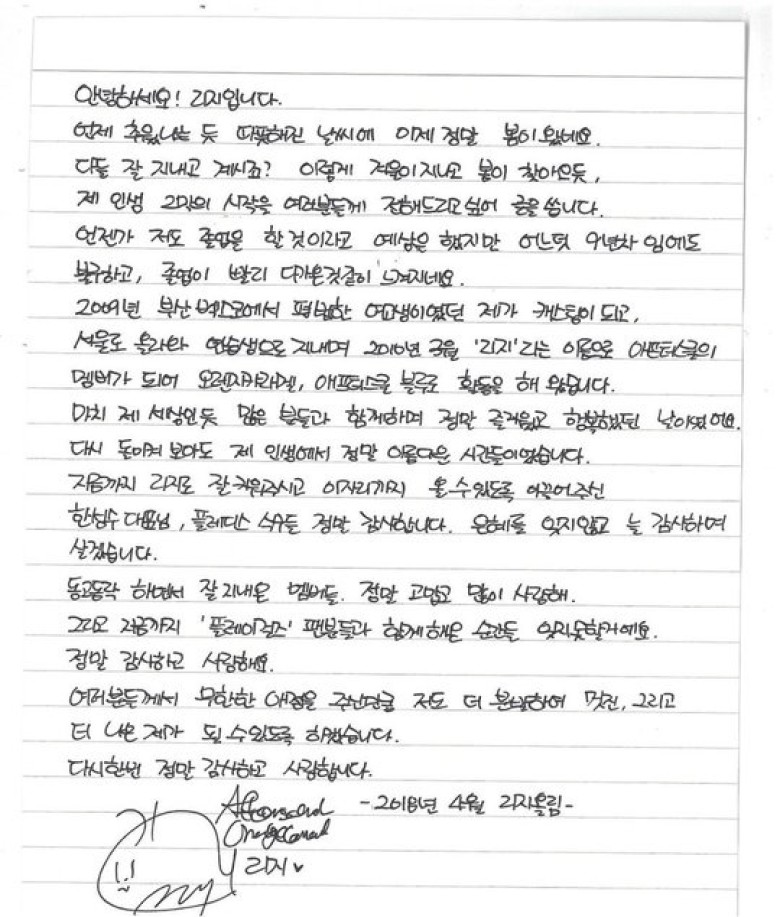 안녕하세요! 리지입니다.
언제 추웠냐는 듯 따뜻해진 날씨에 이제 정말 봄이 왔네요.
다들 잘 지내고 계시죠? 이렇게 겨울이 지나고 봄이 찾아오듯,
제 인생 2막의 시작을 여러분들께 전해드리고 싶어 글을 씁니다.
언젠가 저도 졸업을 할 것이라고 예상은 했지만 어느덧 9년차 임에도
불구하고, 졸업이 빨리 다가온것같이 느껴지네요.
2009년 부산 벡스코에서 평범한 여고생이였던 제가 캐스팅이 되고,
서울로 올라와 연습생으로 지내며 2010년 3월 '리지'라는 이름으로 애프터스쿨의
멤버가 되어 오렌지카라멜, 애프터스쿨 블루로 활동을 해 왔습니다.
마치 제 세상인듯 많은 분들과 함께하며 정말 즐거웠고 행복했던 날이였어요.
다시 돌이켜 보아도 제 인생에서 정말 아름다운 시간들이였습니다.
지금까지 리지로 잘 키워주시고 이자리까지 올 수 있도록 이끌어주신
한성수 대표님, 플레디스 식구들 정말 감사합니다. 은혜를 잊지않고 늘 감사하며
살겠습니다.
동고동락 하면서 잘 지내온 멤버들. 정말 고맙고 많이 사랑해.
그리고 지금까지 '플레이걸즈' 팬분들과 함께해온 순간들 잊지못할거에요.
정말 감사하고 사랑해요.
여러분들께서 무한한 애정을 주신만큼 저도 더 분발하여 멋진, 그리고
더 나은 제가 될 수 있도록 하겠습니다.
다시한번 정말 감사하고 사랑합니다.
-2018년 4월 리지올림-
리지♥